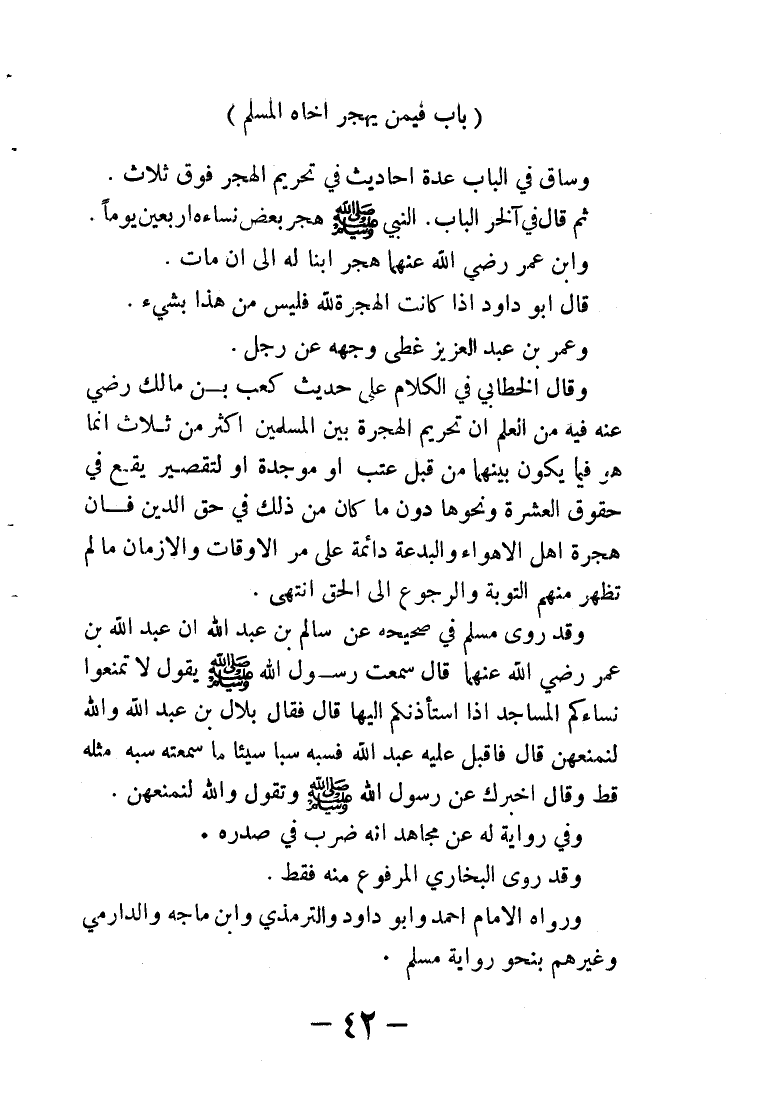 ( باب فيمن يهجر اخاه المسلم )
وساق في الباب عدة احاديث في تحريم الهجر فوق ثلاث .
ثم قال في آخر الباب . النبي ﷺ هجر بعض نساءه اربعين يوماً .
وابن عمر رضي الله عنهما هجر ابنا له الى ان مات .
قال ابو داود اذا كانت الهجرة لله فليس من هذا بشيء .
وعمر بن عبد العزيز غطى وجهه عن رجل .
وقال الخطابي في الكلام على حديث كعب بن مالك رضي
عنه فيه من العلم ان تحريم الهجرة بين المسلمين اكثر من ثلاث انما
هو فيما يكون بينهما من قبل عتب او موجدة او لتقصير يقع في
حقوق العشرة ونحوها دون ما كان من ذلك في حق الدين فان
هجرة اهل الاهواء والبدعة دائمة على مر الاوقات والازمان ما لم
تظهر منهم التوبة والرجوع الى الحق انتهى .
وقد روى مسلم في صحيحه عن سالم بن عبد الله ان عبد الله بن
عمر رضي الله عنهما قال سمعت رسول الله ﷺ يقول لا تمنعوا
نساءكم المساجد اذا استأذنكم اليها قال فقال بلال بن عبد الله والله
لنمنعهن قال فاقبل عليه عبد الله فسبه سبا سيئا ما سمعته سبه مثله
قط وقال اخبرك عن رسول الله ﷺ وتقول والله لنمنعهن .
وفي رواية له عن مجاهد انه ضرب في صدره .
وقد روى البخاري المرفوع منه فقط .
ورواه الامام احمد وابو داود والترمذي وابن ماجه والدارمي
وغيرهم بنحو رواية مسلم .
— ٤٢ —